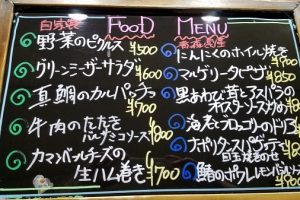 FOOD MENU
自家製
野菜のピクルス ¥500
グリーンシーザーサラダ ¥600
真鯛のカルパッチョ ¥700
牛肉のたたき
バルサミコソース ¥800
カマンベールチーズの
生ハム巻き ¥700
青森県産
にんにくのホイル焼き ¥400
マルゲリータピザ ¥850
黒あわび茸とアスパラの
オイスターソース
海老とブロッコリーの
ナポリタンスパゲティー
目玉焼きのせ
鮪のポワレ レモンバター